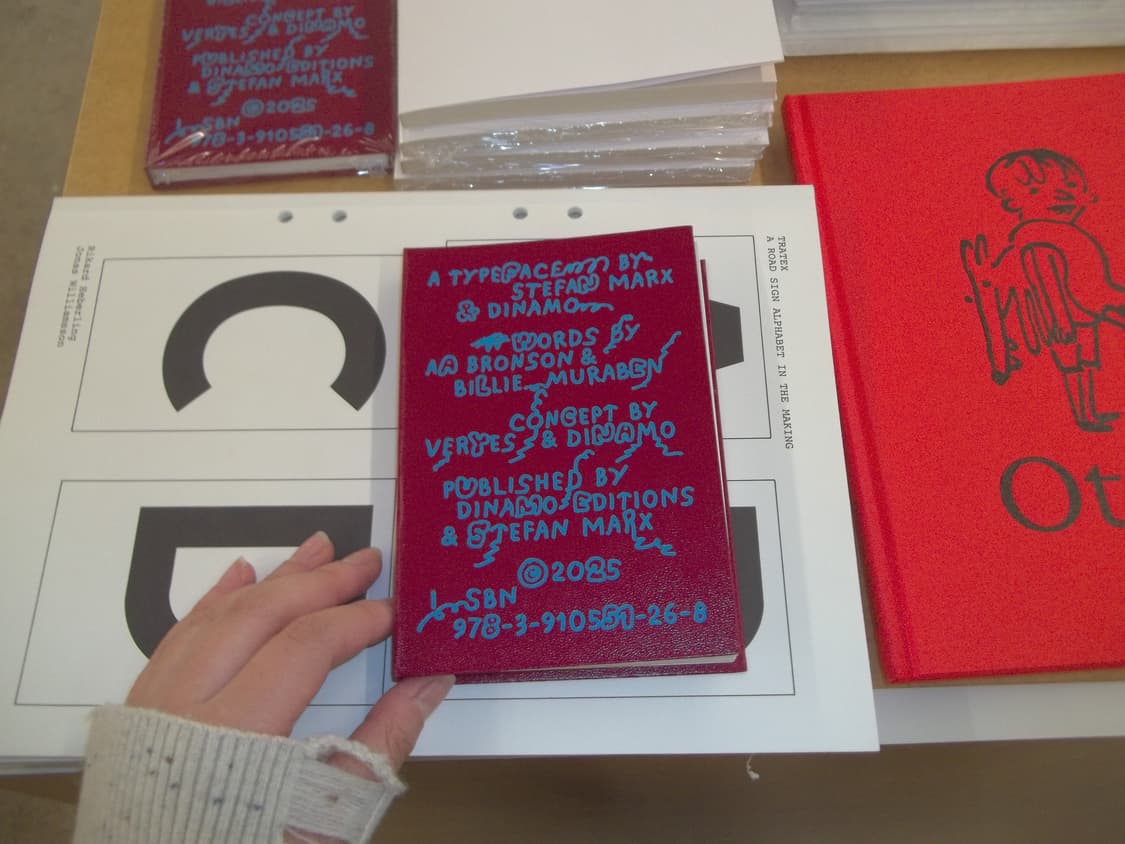 CONCEPT BY
VERGES & DINAMO
PUBLISHED BY
DINAMO EDITIONS
& STEFAN MARX
©2025
ISBN
Rikard Heberling
Jonas Williamsson
TRATEX
A ROAD SIGN ALPHABET IN THE MAKING
C
D
A TYPEFACE BY
STEFAN MARX
& DINAMO
WORDS BY
AA BRONSON &
BILLIE MURABEN
CONCEPT BY
VERGES & DINAMO
PUBLISHED BY
DINAMO EDITIONS
& STEFAN MARX
©2025
ISBN
Ot